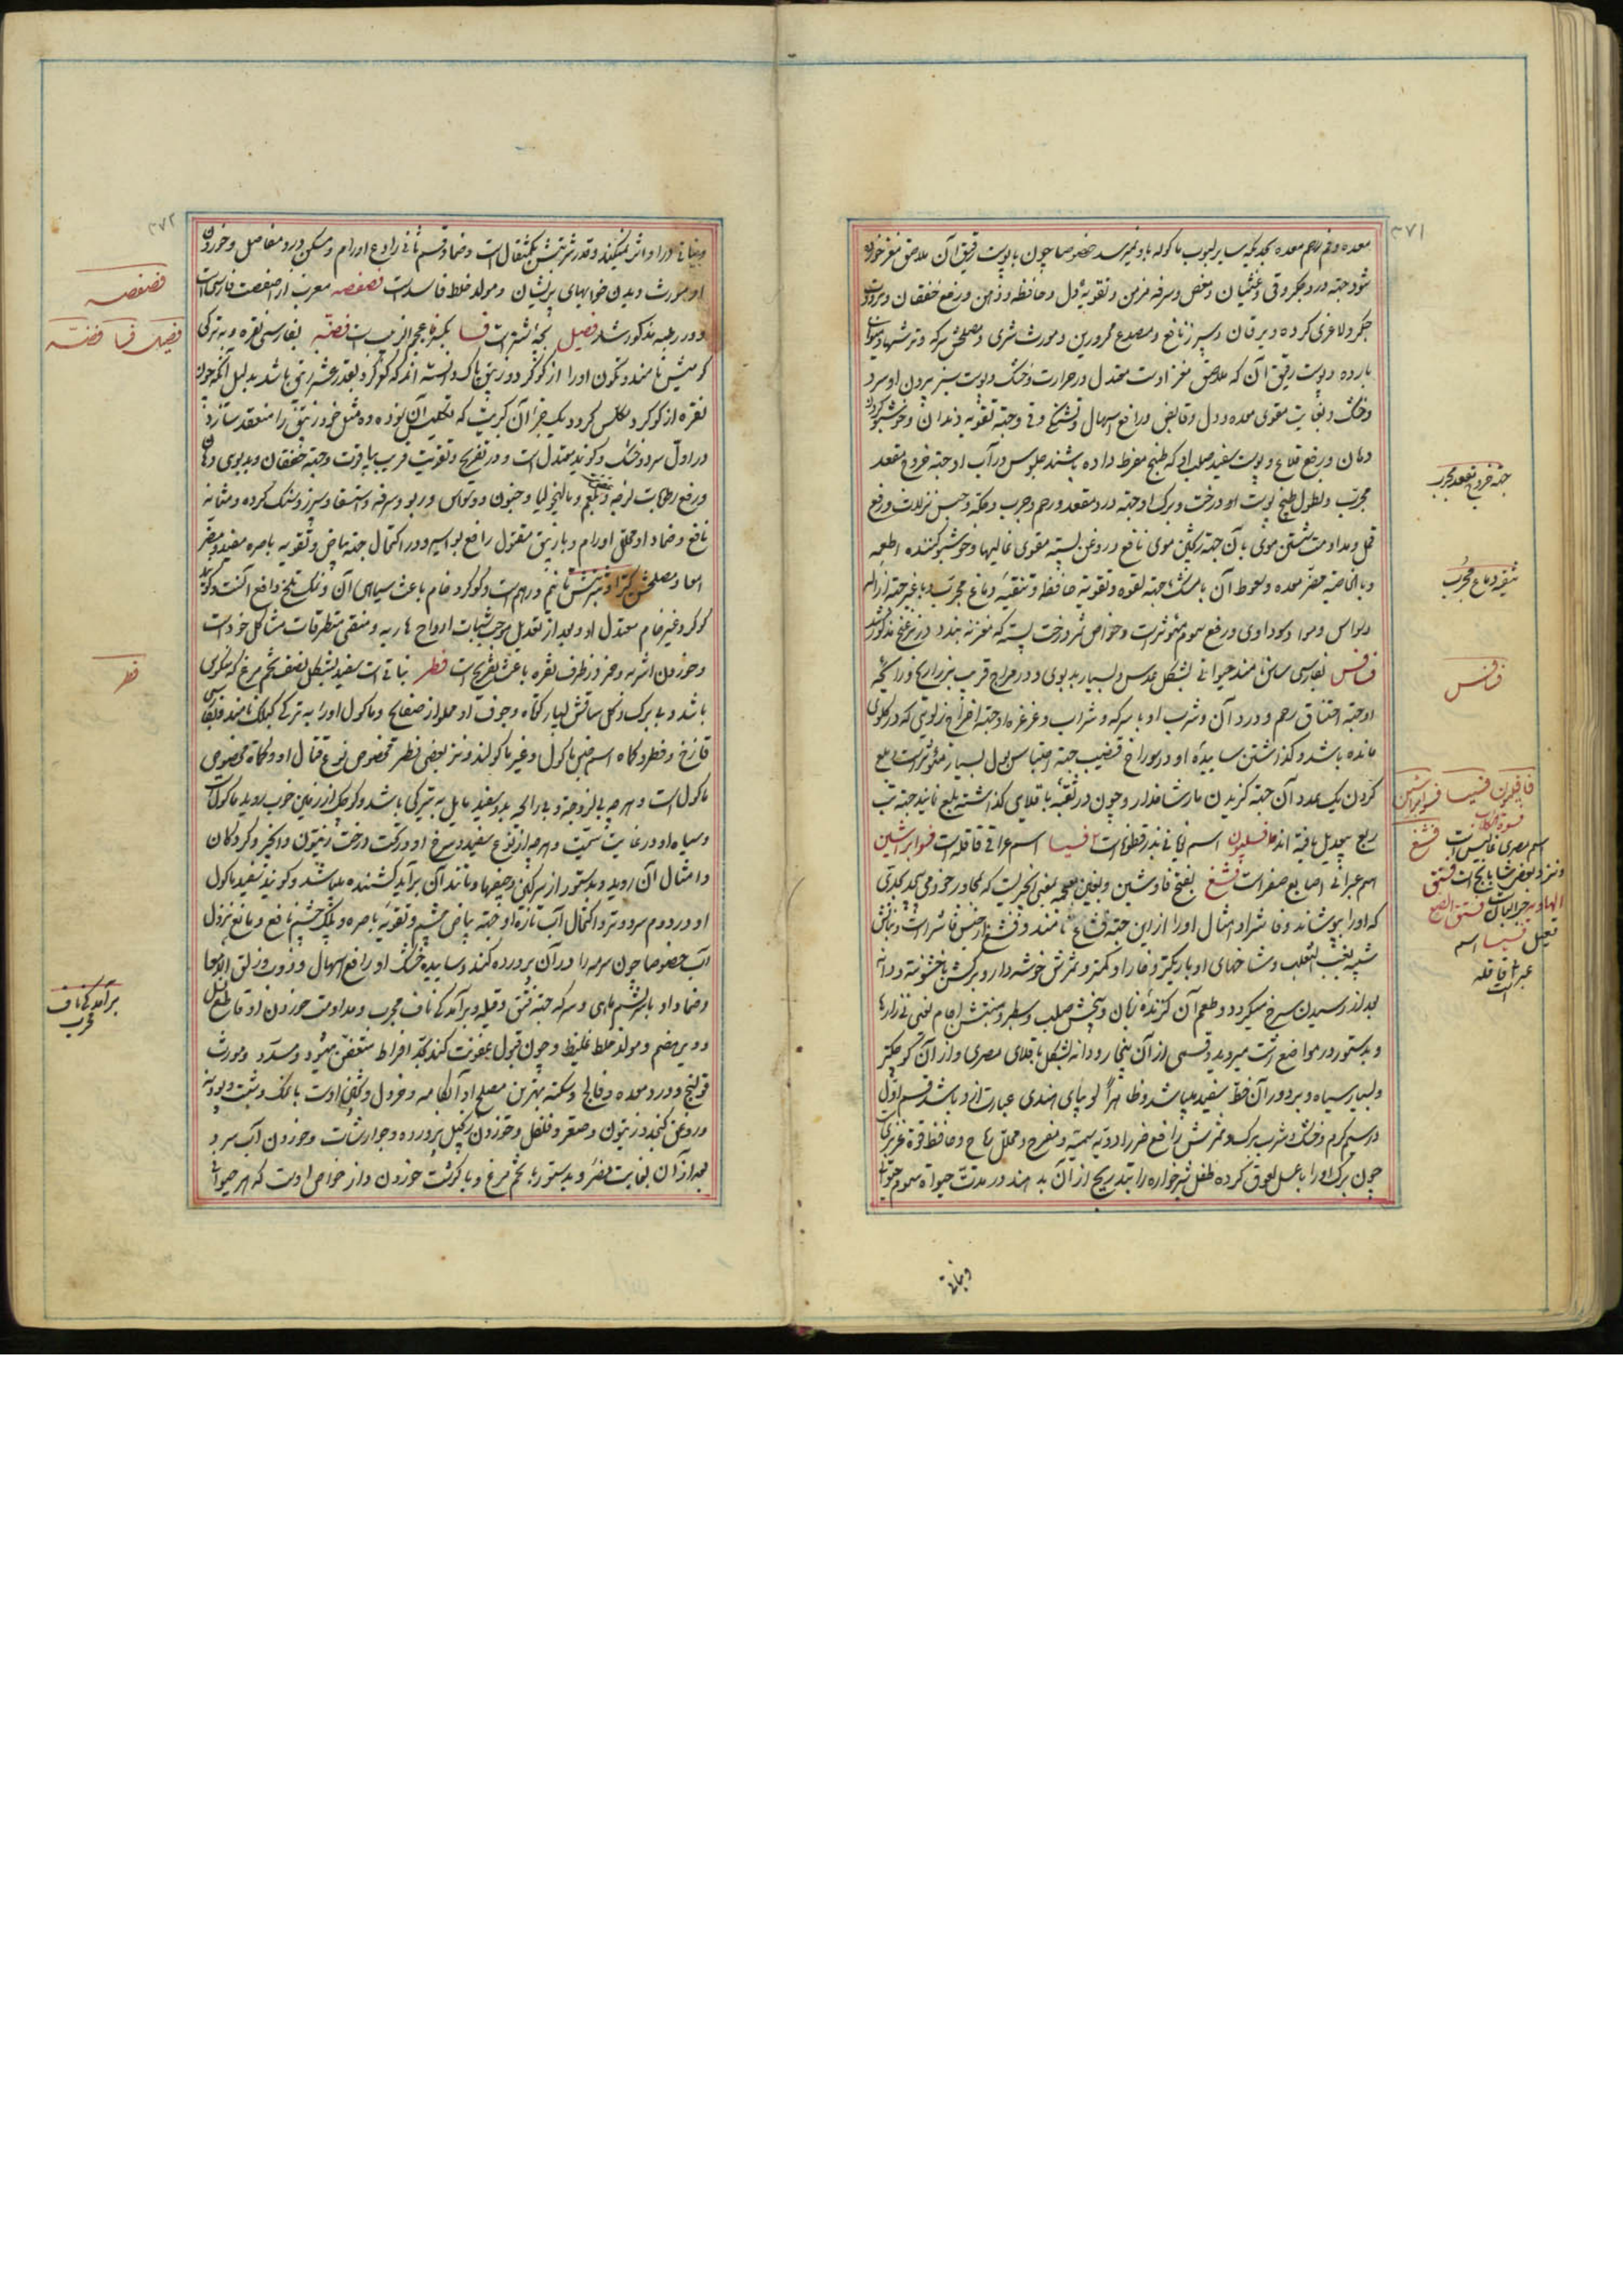 ۳۷۱
معده و فم رحم معده بحدیکه سایر لبوب ماکوله باو نمیرسد خصوصا چون با پوست رقیق آن ملاصق مغز خورده
شود جهته درد جگر و قی و غثیان و مغص و سرفه مزمن و تقویة دل و حافظه و ذهن و رفع خفقان و
جگر و لاغری کرده و یرقان و سپرز نافع و مصدع محرورین و مورث شری و مصلحش سرکه و ترشیها و
بارده و پوست رقیق آن که ملاصق مغز اوست معتدل در حرارت و خشک و پوست سبز بیرون او سرد
و خشک و بغایت مقوی معده و دل و قابض و رافع اسهال و تشنگی و قی و جهته تقویه دندان و خوشبو کردن
دهان و رفع قلاع و پوست سفید صلب او که طبخ مفرط داده باشند جلوس در آب او جهته خروج مقعد
مجرب و نطول طبیخ پوست او و درخت و برک او جهته درد مقعد و رحم و جرب و حکه و حبس نزلات و رفع
قمل و مداومت شستن موی با آن جهته موی نافع و روغن پسته مقوی و خوشبو کننده اطعمه
و بالخاصیه مضر معده و سعوط آن با مشک جهته لقوه و تقویة حافظه و تنقیه دماغ مجرب و
وسواس و مواد سوداوی و رفع سموم مؤثرست و خواص ثمر درخت پسته که مغز نه بندد در بزغنج مذکور شد
فسافس بفارسی ساس نامند حیوانی بشکل عدس و بسیار بدبوی و در مزاج قریب بذراریح و رائحه
او جهته اختناق رحم و درد آن و شرب او با سرکه و شراب و غرغره او جهته اخراج زلوئی که در کلوی
مانده باشد و کذاشتن ساییده او در سوراخ قضیب جهته احتباس بول بسیار مؤثر است بلع
کردن یک عدد آن جهته کزیدن مار شاخدار و چون در ثقبه باقلای کذاشته بلع نمایند جهته تب
ربع بتعدیل یافته اند فافسلیون اسم یونانی بذرقطونا است فسیا اسم عراقی قاقله است فسوابراشین
اسم عبرانی اصابع صفر است فشغ بفتح فا و شین و بغین معجمه بمعنی انجریست که بمجاور خود می پیچد
که او را بپوشاند و فاشرا و امثال او را از این جهته فشاغ نامند و فشغ از جنس فاشرا است و نباتش
شبیه بعنب الثعلب و شاخهای او باریکتر و خار او کمتر و ثمرش خوشه دار و برکش با خشونت و دانه
بعد از رسیدن سرخ میکردد و طعم آن کزنده زبان و بیخش صلب و سطبر و منبتش اجام یعنی نی زارها
و بدستور در مواضع میروید و قسمی از آن بیخار و دانه بشکل باقلای مصری و از آن کوچکتر
و بسیار سیاه و بر دور آن خط سفید میباشد و ظاهرا لوبیای هندی عبارت از و باشد قسم اول
در سیم کرم و خشک و شرب برک و ثمرش رافع ضرر ادویه سمیه و مفرح و محلل ریاح و حافظ قوة غریزی
چون برک او را با عسل لعوق کرده طفل شیرخواره را بتدریج از آن بدهند در مدت حیوة سموم
و نباتی
جهته خروج مقعد مجرب
تنقیه دماغ مجرب
فسافس
فافسلیون فسیا فسوابراشین
فسوة الکلاب
فشغ
۳۷۲
و نباتی در او اثر نمیکند و قدر شربتش یکمثقال است و ضماد قسم ثانی رادع اورام و مسکن درد مفاصل و خوردن
او مورث دیدن خوابهای پریشان و مولد خلط فاسدست فصفصه معرب از اصفصت فارسی است
و در رطبه مذکور شد فصیل بچه اشترست فضا بکسر فا عجم الزبیب است فضه بفارسی نقره و به ترکی
کومیش نامند و تکون او را از کوکرد و زیبق پاک دانسته اند که کوکرد بقدر عشر زیبق باشد بدلیل آنکه چون
نقره از کوکرد مکلس کردد یک جزء آن کبریت که تکلیس آن نموده ده مثل خود زیبق را منعقد سازد
در اول سرد و خشک و کویند معتدل است و در تفریح و تقویت قریب بیاقوت و جهته خفقان و بدبوی دهان
و رفع رطوبات لزجه و بلغم و مالیخولیا و جنون و وسواس و ربو و سرفه و استسقا و سپرز و سنک کرده و مثانه
نافع و ضماد او محلل اورام و با زیبق مقتول رافع بواسیر و در اکتحال جهته بیاض و تقویه باصره مفید و مضر
امعا و مصلحش کتیرا و شربتش تا نیم درهم است و کوکرد خام باعث سیاهی آن و نمک تلخ دافع آنست و کویند
کوکرد غیر خام معتدل او و بعد از تعدیل موجب ثبات ارواح هاربه و منقی متطرقات مشاکل خود است
و خوردن اشربه و خمر در ظرف نقره باعث تفریح است فطر نباتی است سفید بشکل نصف تخم مرغ که منکوس
باشد و بی برک و کل ساقش بسیار کوتاه و جوف او مملو از صفایح و ماکول او را به ترکی کبلک نامند
قارخ و فطر و کماه اسم جنس ماکول و غیر ماکولند و نزد بعضی فطر مخصوص نوع قتال او و کماه مخصوص
ماکول است و هرچه بی لزوجة و بی رائحه بد و سفید مایل به تیرکی باشد و کوچک از زمین خوب روید ماکول است
و سیاه او در غایت سمیت و هرچه از نوع سفید و سرخ او در تحت درخت زیتون و انجیر و کردکان
و امثال آن روید و بدستور از سرکین و جیفها و مانند آن برآید کشنده میباشد و کویند سفید ماکول
او در دوم سرد و تر و اکتحال آب تازه او جهته بیاض چشم و تقویه باصره و پلک چشم نافع و مانع نزول
آب خصوصا چون سرمه را در آن پرورده کنند و ساییده خشک او رافع اسهال و ذرور و زلق الامعا
و ضماد او با سریشم ماهی و سرکه جهته فتق و قیله و برآمدکی ناف مجرب و مداومت خوردن او قاطع نسل
و دیر هضم و مولد خلط غلیظ و چون قبول عفونت کند بحد افراط متعفن میشود و مسدد و مورث
قولنج و درد معده و فالج و سکته بهترین مصلح او آبکامه و خردل و پختن اوست با نمک و شبت و پودنه
و روغن کنجد و زیتون و صعتر و فلفل و خوردن زنجبیل پرورده و جوارشات و خوردن آب سرد
بعد از آن بغایت مضر و بدستور با تخم مرغ و با کوشت خوردن و از خواص اوست که هر حیوانی
فصفصه
فصیل فضا فضه
فطر
برآمدکی ناف
مجرب